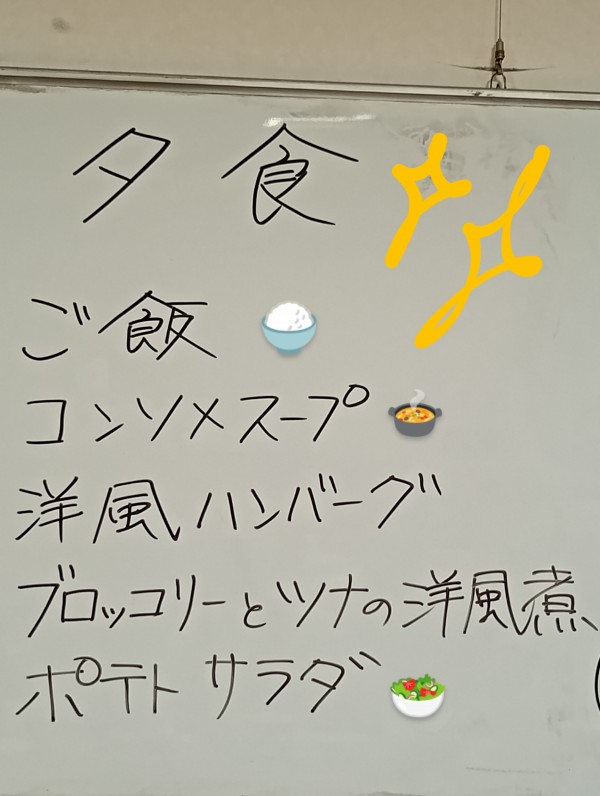 夕食
ご飯
コンソメスープ
洋風ハンバーグ
ブロッコリーとツナの洋風煮
ポテトサラダ